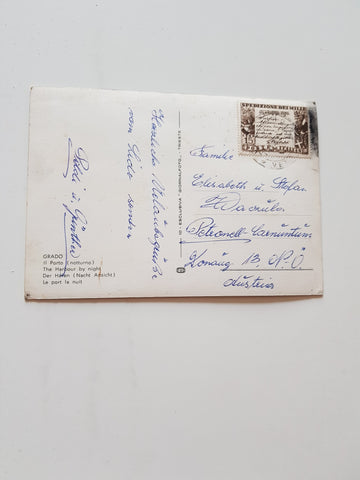 Herzliche Urlaubsgrüße
vom Lido senden
Rudi u. Günther
GRADO
Il Porto (notturno)
The Harbour by night
Der Hafen (Nacht Ansicht)
Le port la nuit
ESCLUSIVA "GIORNALFOTO" - TRIESTE
SPEDIZIONE DEI MILLE
Familie
Elisabeth u. Stefan
Petronell-Carnuntum
13. N.-Ö.
Austria